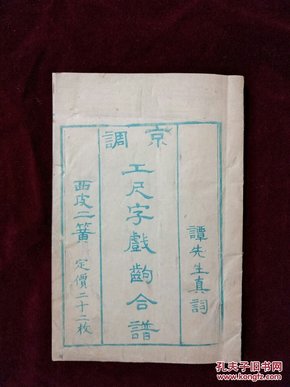 京調
譚先生真詞
工尺字戲齣合譜
西皮二簧 定價二十二枚
孔夫子旧书网